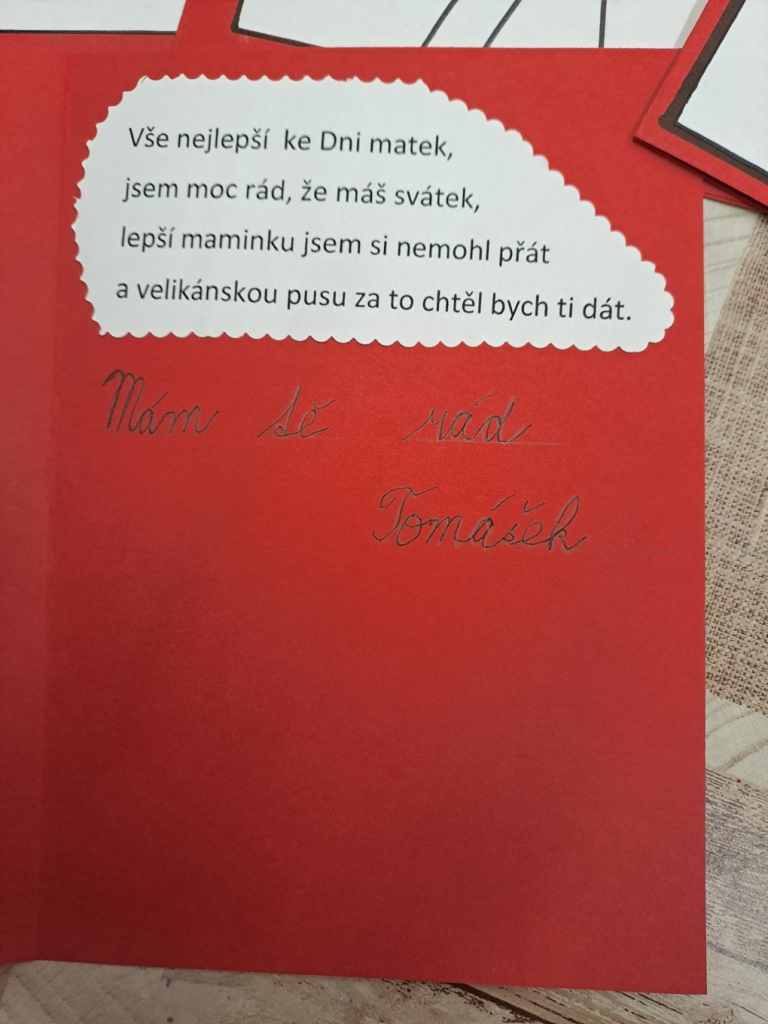 Vše nejlepší ke Dni matek,
jsem moc rád, že máš svátek,
lepší maminku jsem si nemohl přát
a velikánskou pusu za to chtěl bych ti dát.
Mám tě rád
Tomášek